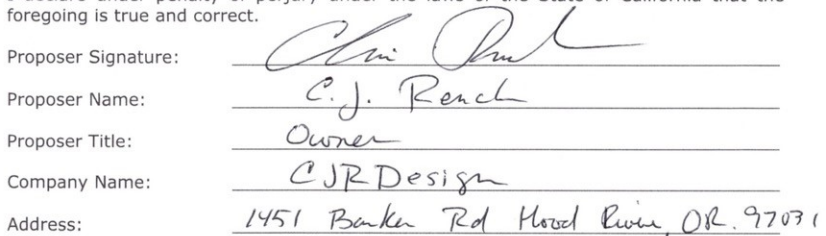 foregoing is true and correct.
Proposer Signature:
Proposer Name: C.J. Rench
Proposer Title: Owner
Company Name: CJRDesign
Address: 1451 Barker Rd Hood River, OR. 97031